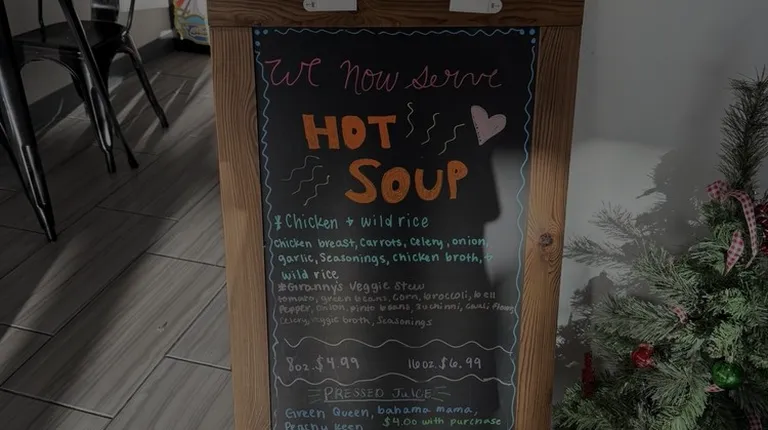 We Now serve
HOT
SOUP
* Chicken + wild rice
Chicken breast, Carrots, Celery, onion,
garlic, Seasonings, chicken broth, +
wild rice
*Granny's Veggie Stew
tomato, green beans, corn, broccoli, bell
Pepper, onion, pinto beans, zuchinni,
Celery, veggie broth, Seasonings
8oz. $4.99 16oz. $6.99
PRESSED JUICE
Green Queen, bahama mama,
Peachy keen $4.00 with purchase